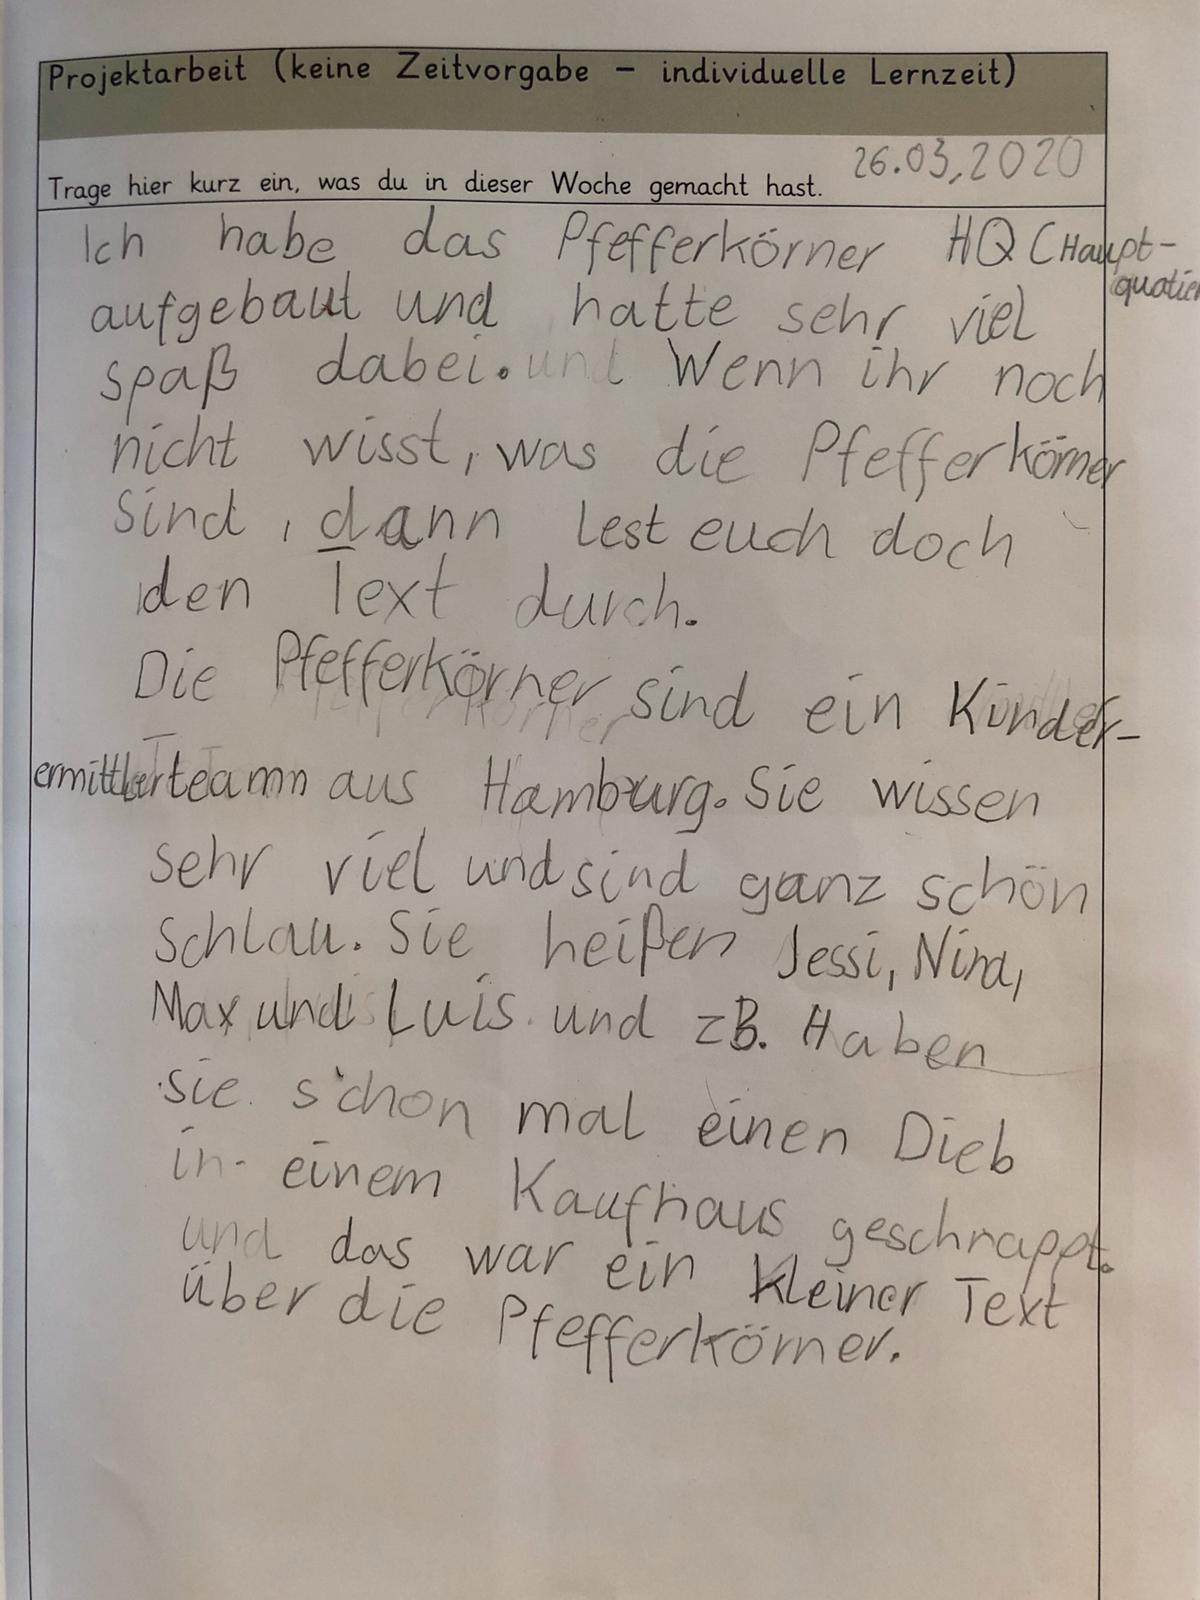 Projektarbeit (keine Zeitvorgabe – individuelle Lernzeit)
26.03,2020
Trage hier kurz ein, was du in dieser Woche gemacht hast.
Ich habe das Pfefferkörner HQ (Haupt-
quatier
aufgebaut und hatte sehr viel
spaß dabei. und Wenn ihr noch
nicht wisst, was die Pfefferkörner
sind, dann lest euch doch
den Text durch.
Die Pfefferkörner sind ein Kinder-
ermittlerteam aus Hamburg. Sie wissen
sehr viel und sind ganz schön
schlau. Sie heißen Jessi, Nina,
Max und Luis und zB. Haben
sie schon mal einen Dieb
in einem Kaufhaus geschnappt.
und das war ein kleiner Text
über die Pfefferkörner.